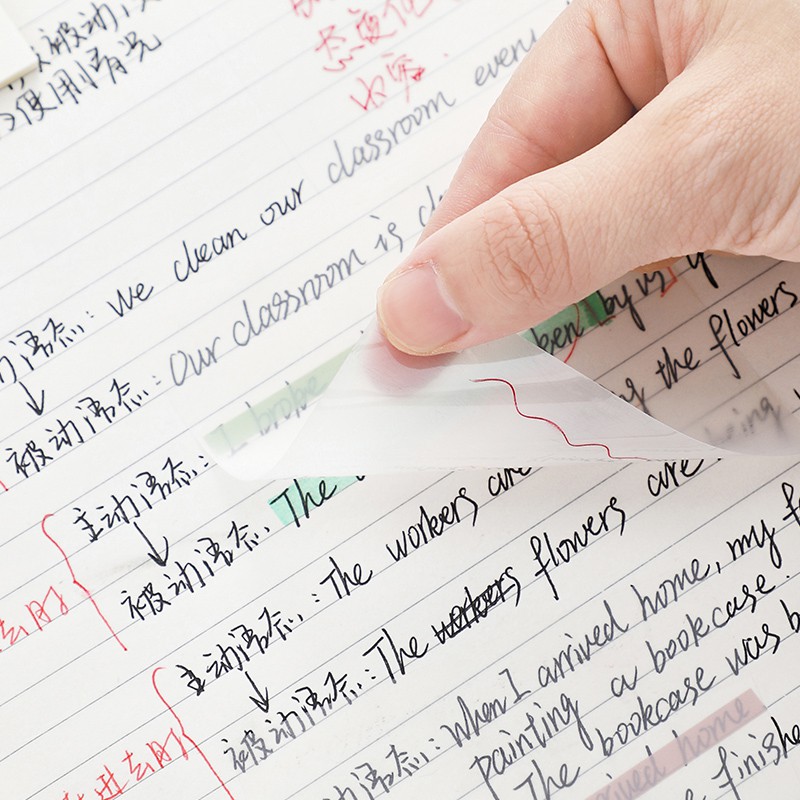 被动
使用情况
态变化
We clean our classroom every
动语态:
Our classroom is
被动语态:
I broke
主动语态:
ken by us
被动语态: The
the flowers
主动语态: The workers are
being
被动语态: The workers flowers are
When I arrived home, my
painting a bookcase.
动语态: The bookcase was
arrived home
finishe
去时
进去时